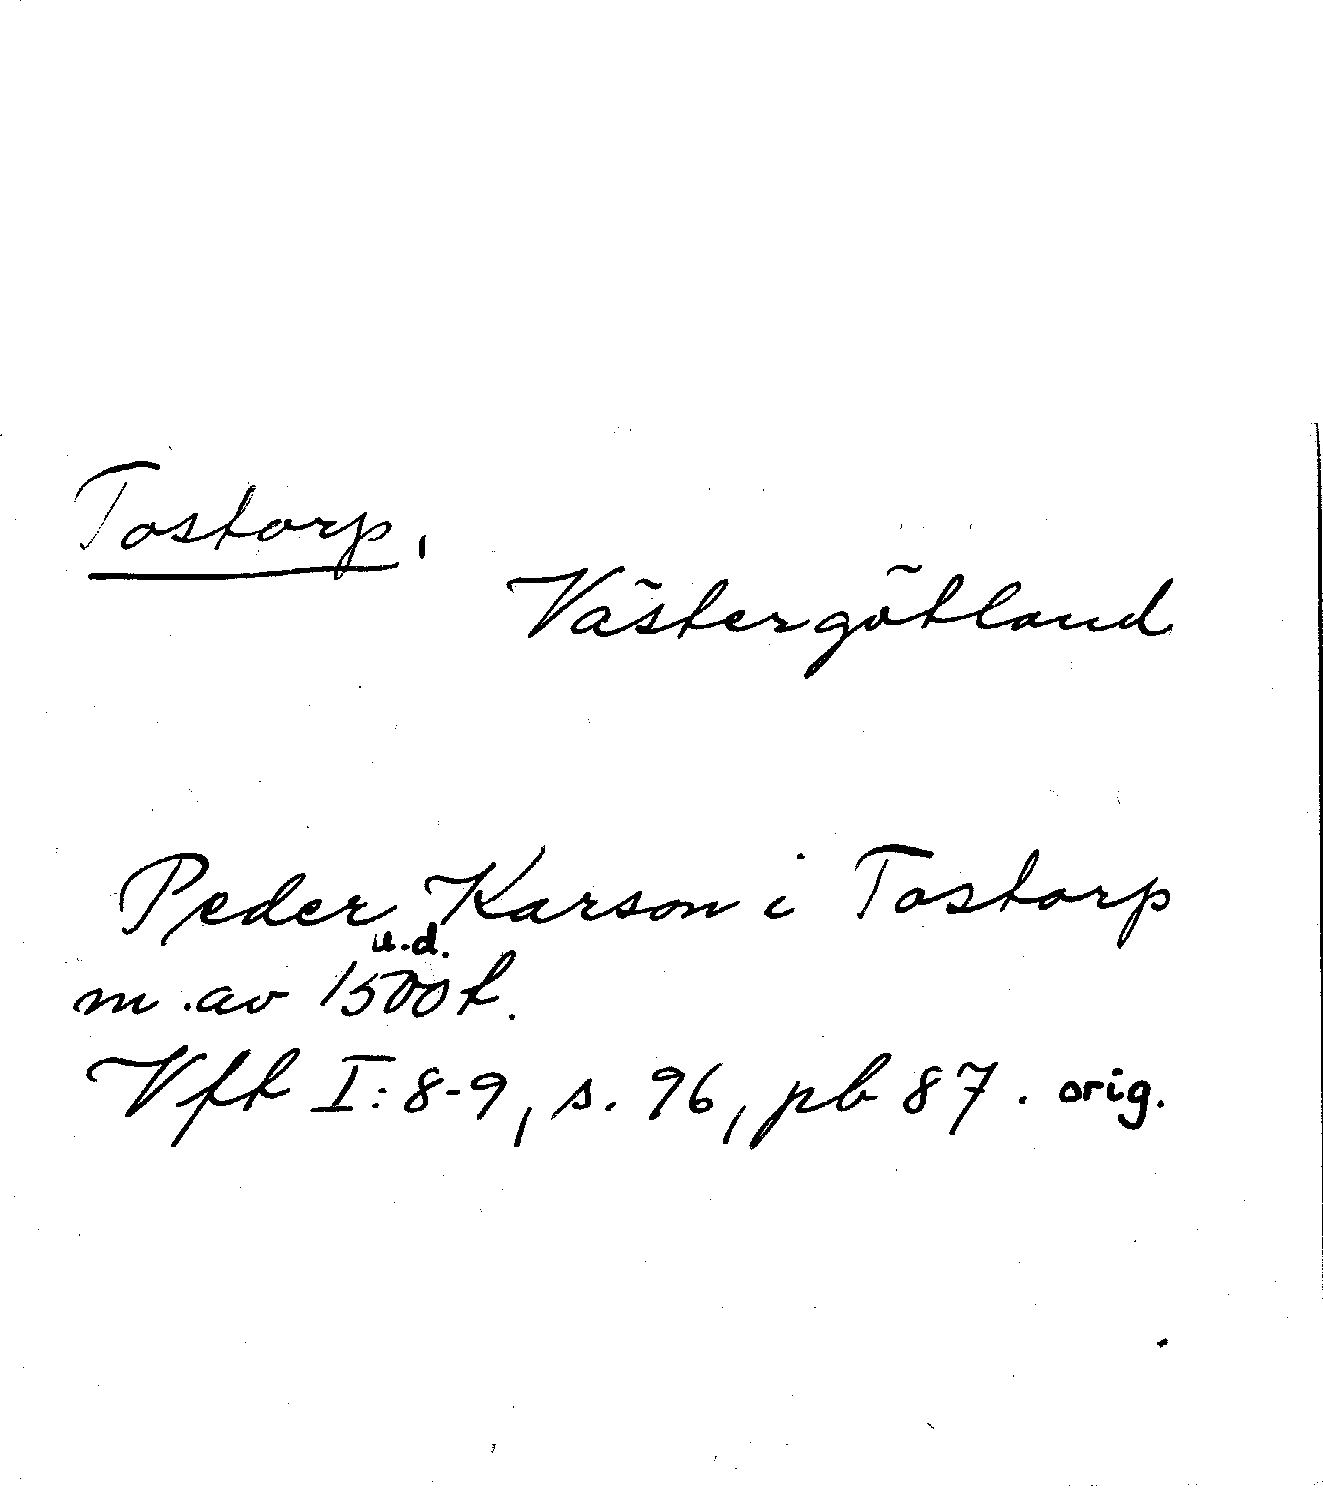 Tostorp,
Västergötland
Peder Karson i Tostorp
u.d.
m. av 1500 t.
Vft I:8-9, s. 96, pb 87. orig.